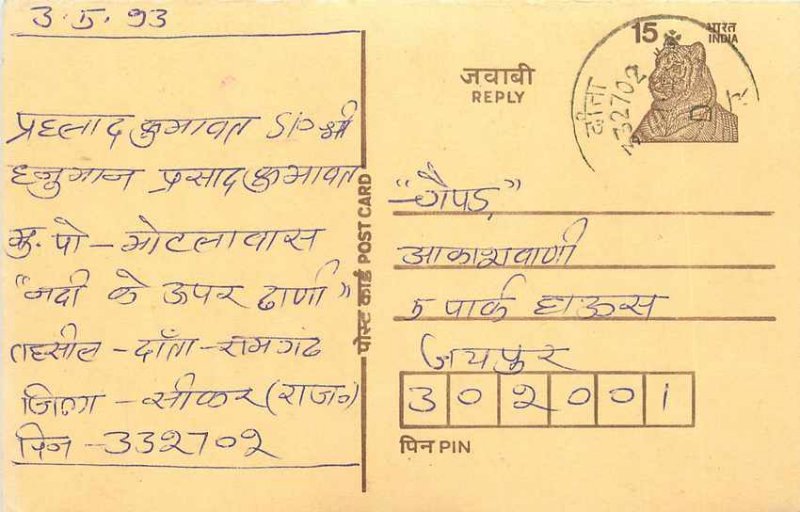 3.5.93
प्रहलाद कुमावत S/० श्री
हनुमान प्रसाद कुमावत
मु. पो - मोटलावास
"नदी के ऊपर ढाणी"
तहसील - दाँता - रामगढ
जिला - सीकर (राज०)
पिन - 332702
पोस्ट कार्ड POST CARD
जवाबी
REPLY
15 भारत
INDIA
दाँता
332702
आकाशवाणी
5 पार्क हाऊस
जयपुर
302001
पिन PIN